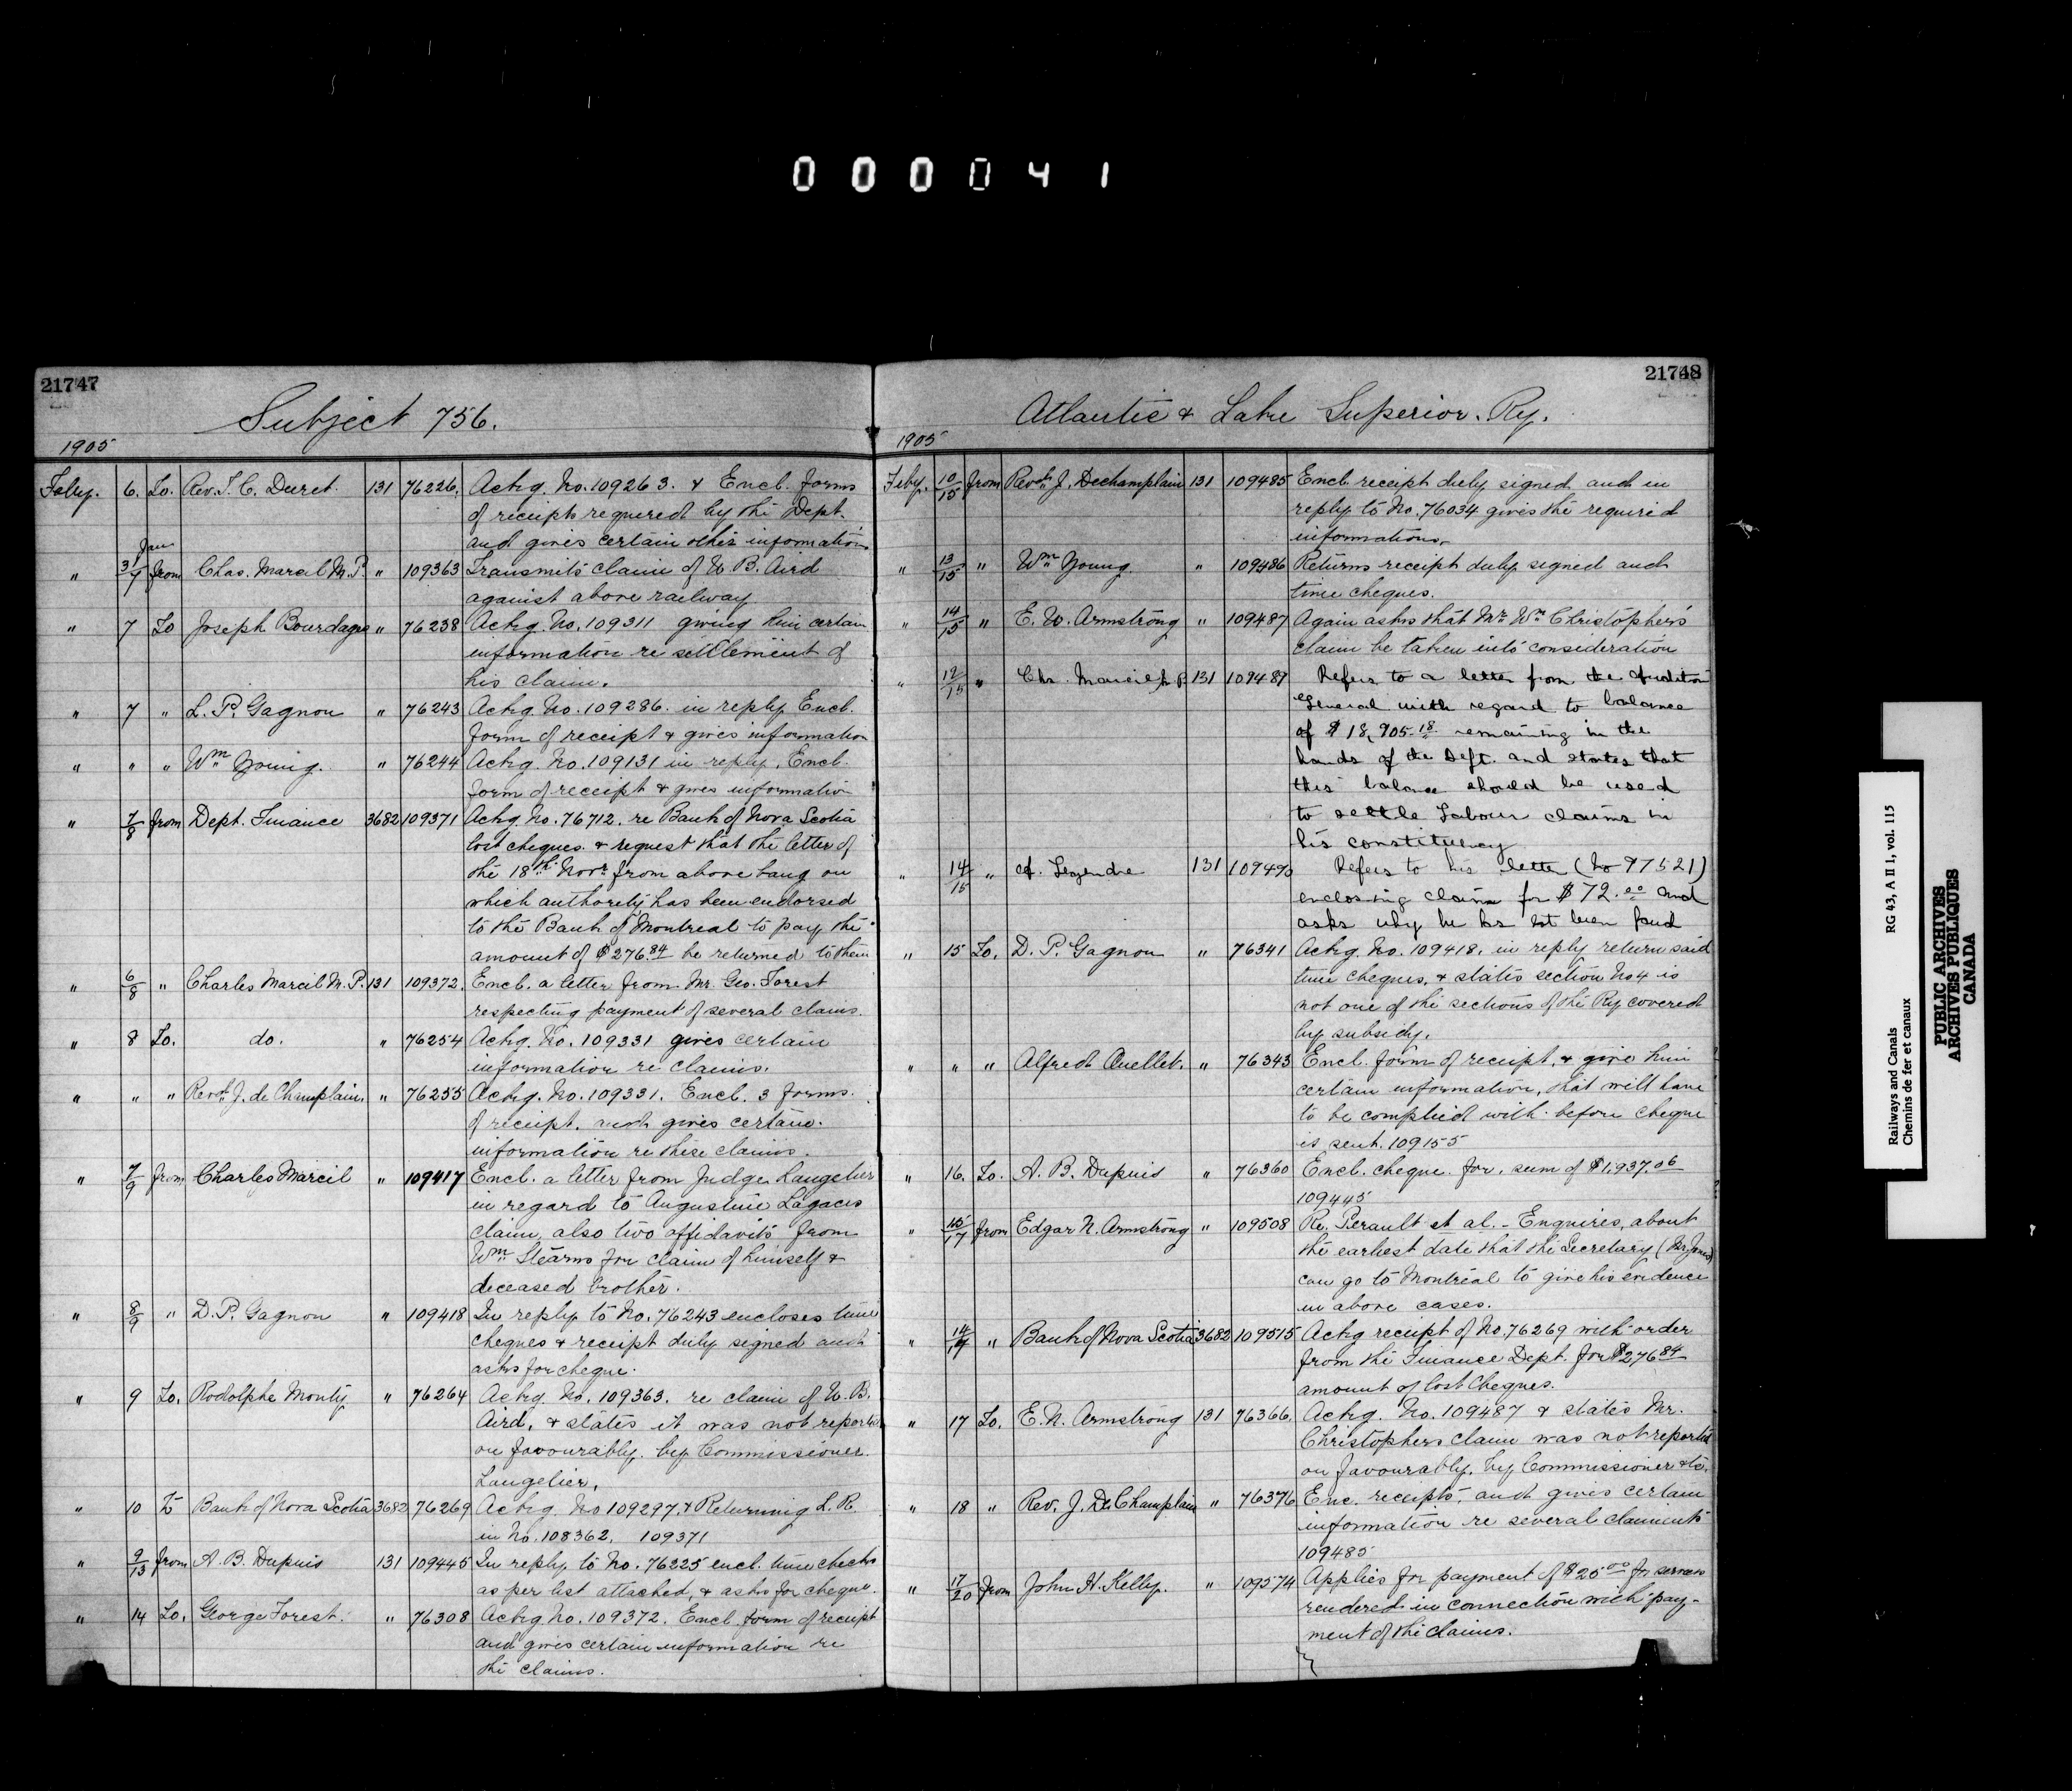 0 0 0 0 4 1
21747
Subject 756.
1905
Feby. 6. To. Rev. T. C. Duret 131 76226. Ackg. No. 109263. & Encl. forms
of receipts required by the Dept.
and gives certain other information
" Jan 31/7 from Chas. Marcil M.P. " 109363 Transmits claim of W. B. Aird
against above railway
" 7 To Joseph Bourdages " 76238 Ackg. No. 109311 giving him certain
information re settlement of
his claim.
" 7 " L. P. Gagnon " 76243 Ackg. No. 109286. in reply Encl.
form of receipt & gives information
" " " Wm Young. " 76244 Ackg. No. 109131 in reply. Encl.
form of receipt & gives information
" 7/8 from Dept. Finance 3682 109371 Ackg. No. 76712. re Bank of Nova Scotia
lost cheques. & request that the letter of
the 18th Novr from above bang on
which authority has been endorsed
to the Bank of Montreal to pay the
amount of $276.84 be returned to them
" 6/8 " Charles Marcil M.P. 131 109372. Encl. a letter from Mr. Geo. Forest
respecting payment of several claims.
" 8 To. do. " 76254 Ackg. No. 109331 gives certain
information re claims.
" " " Revd. J. de Champlain. " 76255 Ackg. No. 109331. Encl. 3 forms.
of receipt. and gives certain.
information re these claims.
" 7/9 from Charles Marcil " 109417 Encl. a letter from Judge Langelier
in regard to Augustine Lagaces
claim, also two affidavits from
Wm Stearns for claim of himself &
deceased brother.
" 8/9 " D. P. Gagnon " 109418 In reply to No. 76243 encloses time
cheques & receipt duly signed and
asks for cheque.
" 9 To. Rodolphe Monty " 76264 Ackg. No. 109363. re claim of W. B.
Aird, & states it was not reported
on favourably. by Commissioner.
Langelier.
" 10 To Bank of Nova Scotia 3682 76269 Ackg. No 109297. & Returning L. R.
in No. 108362. 109371
" 9/13 from A. B. Dupuis 131 109445 In reply to No. 76225 encl. time checks
as per list attached, & asks for cheque.
" 14 To. George Forest. " 76308 Ackg No. 109372. Encl. form of receipt
and gives certain information re
the claims.
21748
Atlantic & Lake Superior. Ry.
1905
Feby. 10/15 from Revd. J. Dechamplain 131 109485 Encl. receipt duly signed and in
reply to No. 76034 gives the required
informations.
" 13/15 " Wm Young " 109486 Returns receipt duly signed and
time cheques.
" 14/15 " E. W. Armstrong " 109487 Again asks that Mr Wm Christopher's
claim be taken into consideration
" 12/15 " Chs. Marcil M.P. 131 109489 Refers to a letter from the Auditor
General with regard to balance
of $18,905.18 remaining in the
hands of the Dept. and states that
this balance should be used
to settle Labour claims in
his constituency
" 14/15 " Legendre 131 109490 Refers to his letter (No 97521)
enclosing claim for $72.00 and
asks why he has not been paid
" 15 To. D. P. Gagnon " 76341 Ackg. No. 109418. in reply return said
time cheques. & states section No 4 is
not one of the sections of the Ry covered
by subsidy.
" " " Alfred Ouellet. " 76343 Encl. form of receipt. & give him
certain information, that will have
to be complied with. before cheque
is sent. 109155
" 16. To. A. B. Dupuis " 76360 Encl. cheque. for. sum of $1,937.06
109445
" 15/17 from Edgar N. Armstrong " 109508 Re. Perault et al. - Enquires, about
the earliest date that the Secretary (Mr Jones)
can go to Montreal to give his evidence
in above cases.
" 14/17 " Bank of Nova Scotia 3682 109515 Ackg receipt of No. 76269 with order
from the Finance Dept. for $276.84
amount of lost Cheques.
" 17 To. E. N. Armstrong 131 76366. Ackg. No. 109487 & states Mr.
Christophers claim was not reported
on favourably. by Commissioner &c.
" 18 " Rev. J. DeChamplain " 76376 Enc. receipts, and gives certain
information re several claimants
109485
" 17/20 from John H. Kelly. " 109574 Applies for payment of $25.00 for services
rendered in connection with pay-
ment of the claims.
Railways and Canals RG 43, A II 1, vol. 115
Chemins de fer et canaux
PUBLIC ARCHIVES
ARCHIVES PUBLIQUES
CANADA